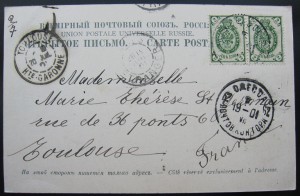 ВСЕМІРНЫЙ ПОЧТОВЫЙ СОЮЗЪ. РОССІЯ.
UNION POSTALE UNIVERSELLE. RUSSIE.
ОТКРЫТОЕ ПИСЬМО. CARTE POSTALE
TOULOUSE
HTE-GARONNE
ОДЕССА
19
01
Mademoiselle
Marie Thérèse St
rue de 36 ponts 6
Toulouse
France
На этой сторонѣ пишется только адресъ. — Côté réservé exclusivement à l'adresse.